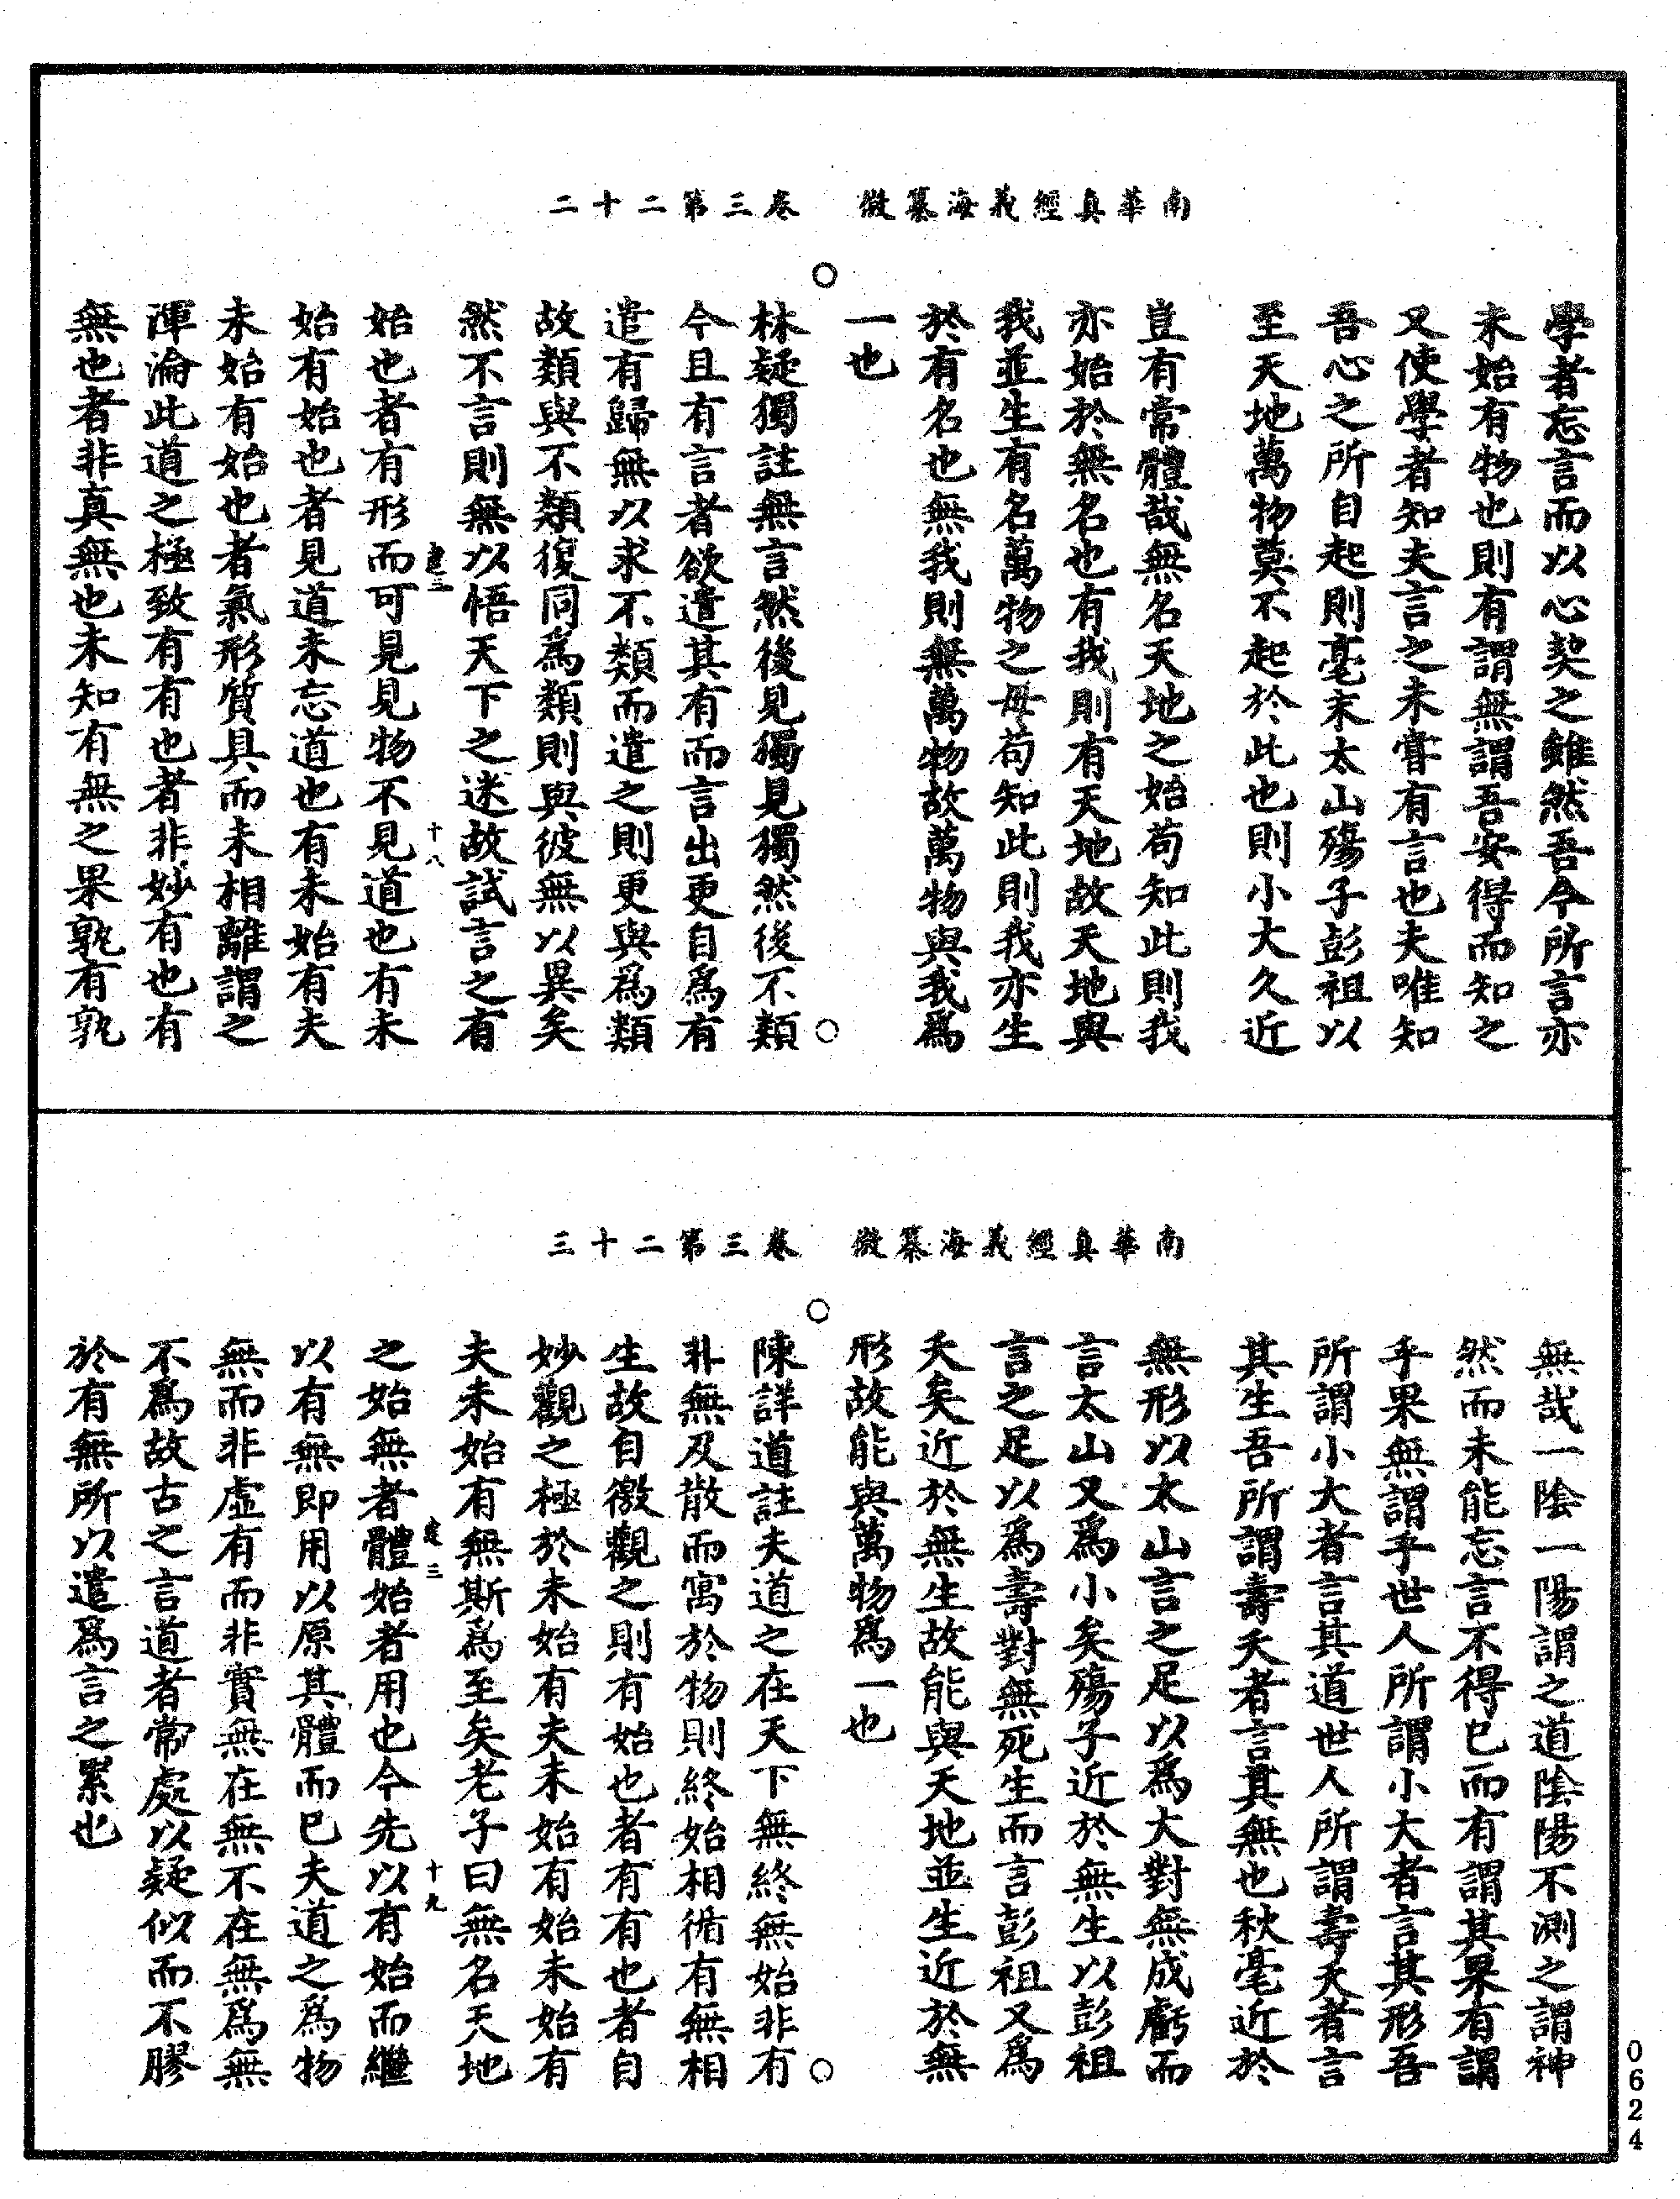 南華真經義海纂微　卷三第二十二
學者忘言而以心契之雖然吾今所言亦
未始有物也則有謂無謂吾安得而知之
又使學者知夫言之未嘗有言也夫唯知
吾心之所自起則毫末太山殤子彭祖以
至天地萬物莫不起於此也則小大久近
豈有常體哉無名天地之始苟知此則我
亦始於無名也有我則有天地故天地與
我並生有名萬物之母苟知此則我亦生
於有名也無我則無萬物故萬物與我為
一也
林疑獨註無言然後見獨見獨然後不類
今且有言者欲遣其有而言出更自為有
遣有歸無以求不類而遣之則更與為類
故類與不類復同為類則與彼無以異矣
然不言則無以悟天下之迷故試言之有
建三　十八
始也者有形而可見見物不見道也有未
始有始也者見道未忘道也有未始有夫
未始有始也者氣形質具而未相離謂之
渾淪此道之極致有有也者非妙有也有
無也者非真無也未知有無之果孰有孰
南華真經義海纂微　卷三第二十三
無哉一陰一陽謂之道陰陽不測之謂神
然而未能忘言不得已而有謂其果有謂
乎果無謂乎世人所謂小大者言其形吾
所謂小大者言其道世人所謂壽夭者言
其生吾所謂壽夭者言其無也秋毫近於
無形以太山言之足以為大對無成虧而
言太山又為小矣殤子近於無生以彭祖
言之足以為壽對無死生而言彭祖又為
夭矣近於無生故能與天地並生近於無
形故能與萬物為一也
陳詳道註夫道之在天下無終無始非有
非無及散而寓於物則終始相循有無相
生故自徼觀之則有始也者有有也者自
妙觀之極於未始有夫未始有始未始有
夫未始有無斯為至矣老子曰無名天地
建三　十九
之始無者體始者用也今先以有始而繼
以有無即用以原其體而已夫道之為物
無而非虛有而非實無在無不在無為無
不為故古之言道者常處以疑似而不膠
於有無所以遣為言之累也
0624